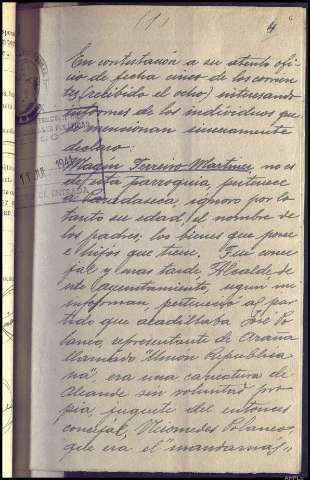 (1)
4
En contestación a su atento ofi-
cio de fecha cinco de los corrien-
tes (recibido el ocho) interesando
informes de los individuos que
se mencionan sinceramente
declaro:
Magin Ferreiro Martinez, no es
de esta parroquia, pertenece
a ignoro por lo
tanto su edad, el nombre de
los padres, los bienes que posee
e hijos que tiene. Fue conce-
jal y mas tarde, Alcalde de
este Ayuntamiento, segun mi
informan, perteneció al par-
tido que acadillaba José Po-
lanco, representante de Azaña
llamado "Union Republica-
na", era una caricatura de
Alcalde sin voluntad pro-
pia, juguete del entonces
concejal, Nicomedes Polanco,
que era el "mandamás",
11 JUL 1941
DE ENTRADA